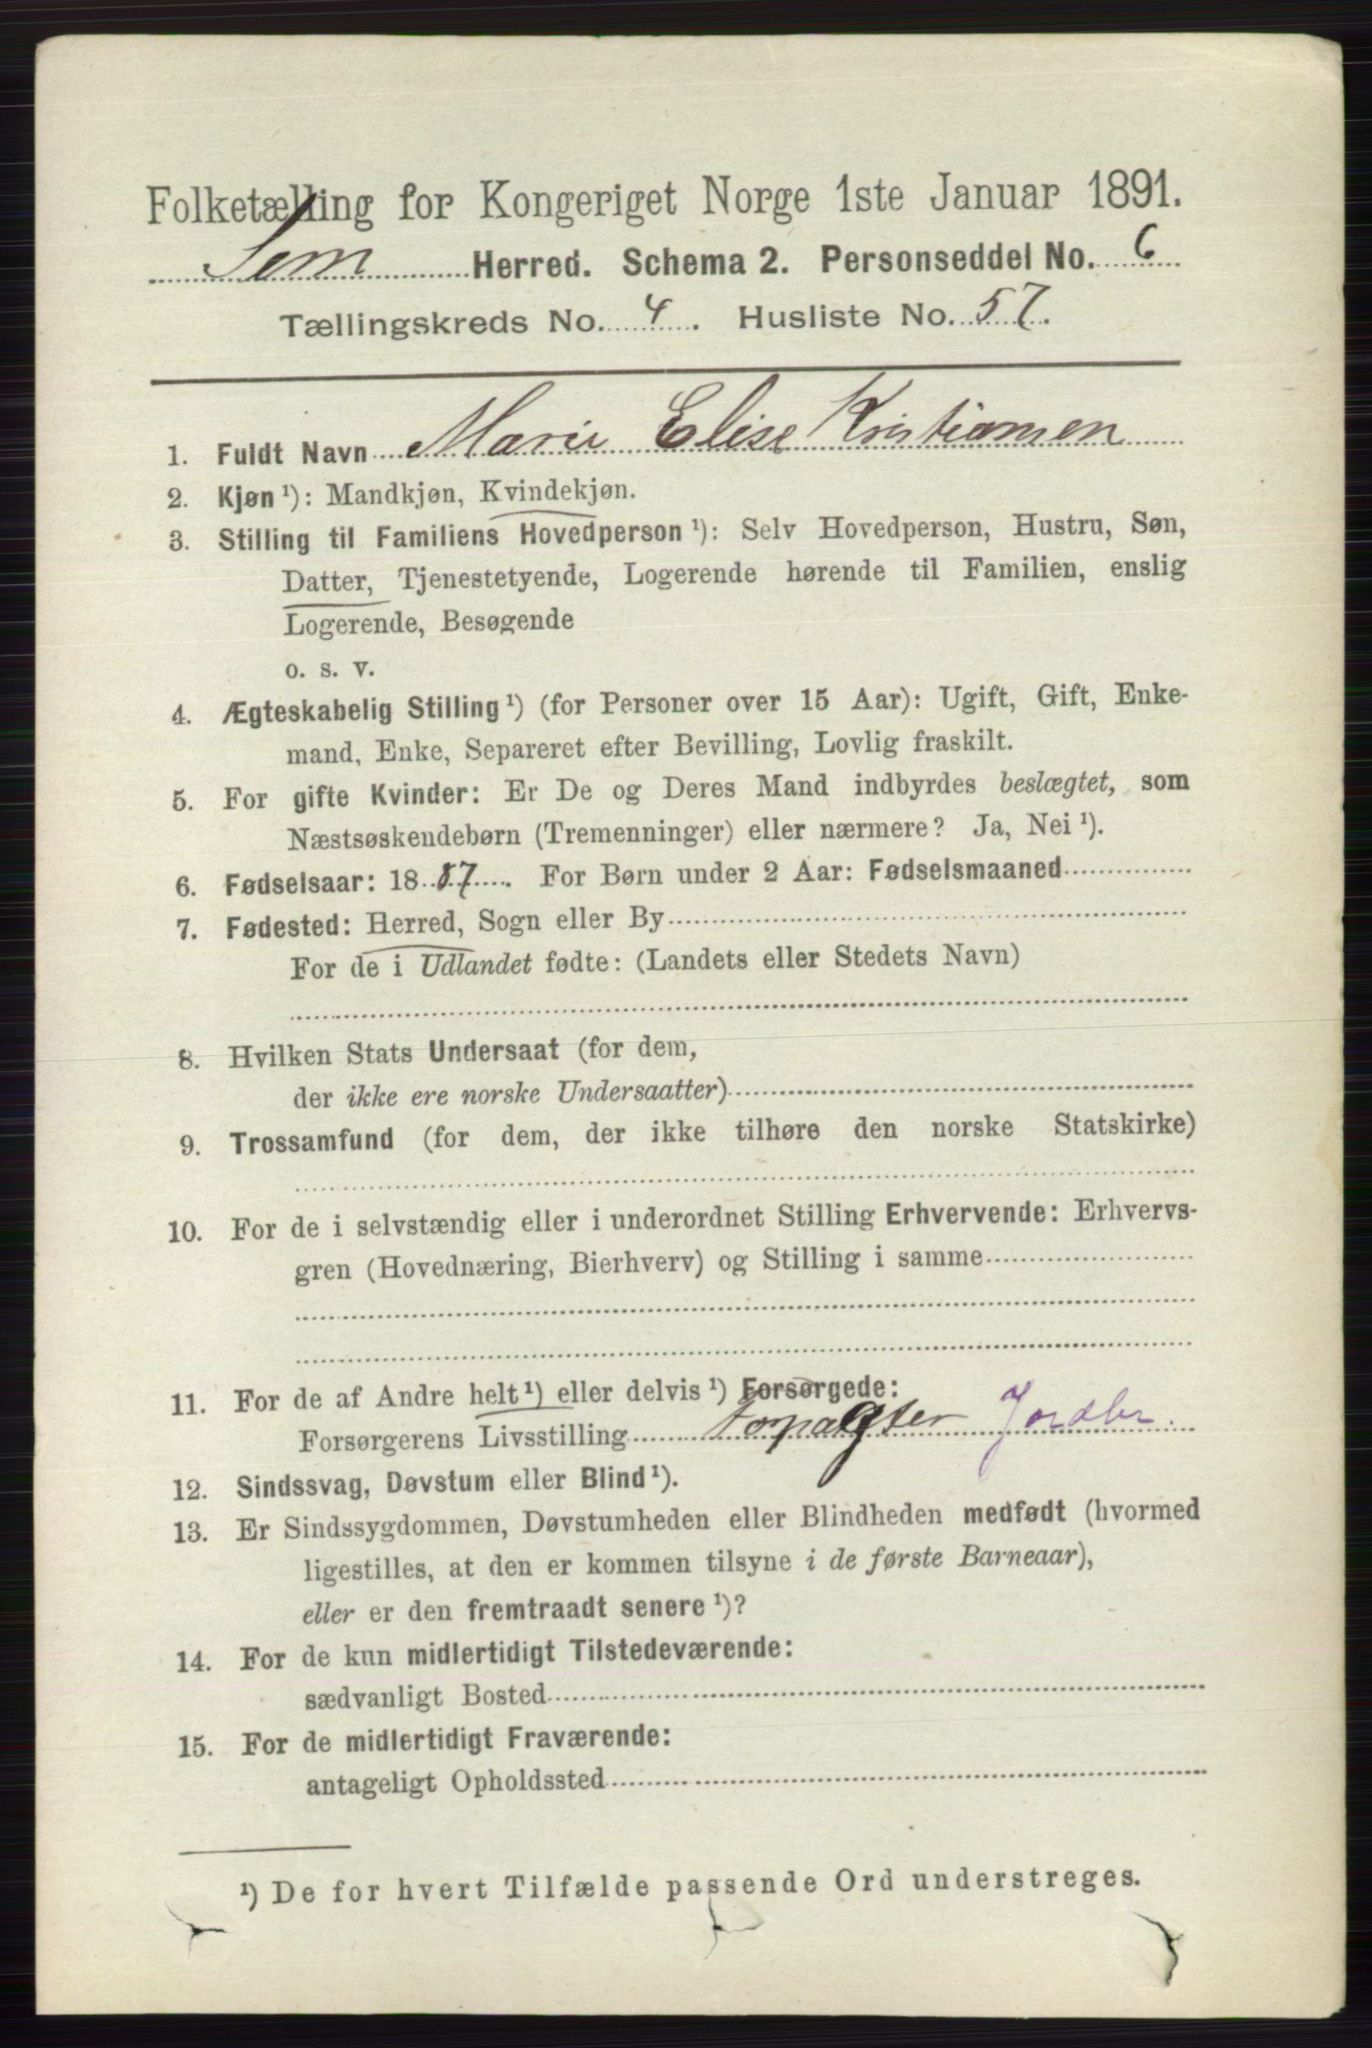 Folketælling for Kongeriget Norge 1ste Januar 1891.
Sem Herred. Schema 2. Personseddel No. 6
Tællingskreds No. 4. Husliste No. 57.
1. Fuldt Navn Marie Elise Kristiansen
2. Kjøn ¹): Mandkjøn, Kvindekjøn.
3. Stilling til Familiens Hovedperson ¹): Selv Hovedperson, Hustru, Søn,
Datter, Tjenestetyende, Logerende hørende til Familien, enslig
Logerende, Besøgende
o. s. v.
4. Ægteskabelig Stilling ¹) (for Personer over 15 Aar): Ugift, Gift, Enke-
mand, Enke, Separeret efter Bevilling, Lovlig fraskilt.
5. For gifte Kvinder: Er De og Deres Mand indbyrdes beslægtet, som
Næstsøskendebørn (Tremenninger) eller nærmere? Ja, Nei ¹).
6. Fødselsaar: 1887. For Børn under 2 Aar: Fødselsmaaned
7. Fødested: Herred, Sogn eller By
For de i Udlandet fødte: (Landets eller Stedets Navn)
8. Hvilken Stats Undersaat (for dem,
der ikke ere norske Undersaatter)
9. Trossamfund (for dem, der ikke tilhøre den norske Statskirke)
10. For de i selvstændig eller i underordnet Stilling Erhvervende: Erhvervs-
gren (Hovednæring, Bierhverv) og Stilling i samme
11. For de af Andre helt ¹) eller delvis ¹) Forsørgede:
Forsørgerens Livsstilling Forpagter Jordbr.
12. Sindssvag, Døvstum eller Blind ¹).
13. Er Sindssygdommen, Døvstumheden eller Blindheden medfødt (hvormed
ligestilles, at den er kommen tilsyne i de første Barneaar),
eller er den fremtraadt senere ¹)?
14. For de kun midlertidigt Tilstedeværende:
sædvanligt Bosted
15. For de midlertidigt Fraværende:
antageligt Opholdssted
¹) De for hvert Tilfælde passende Ord understreges.